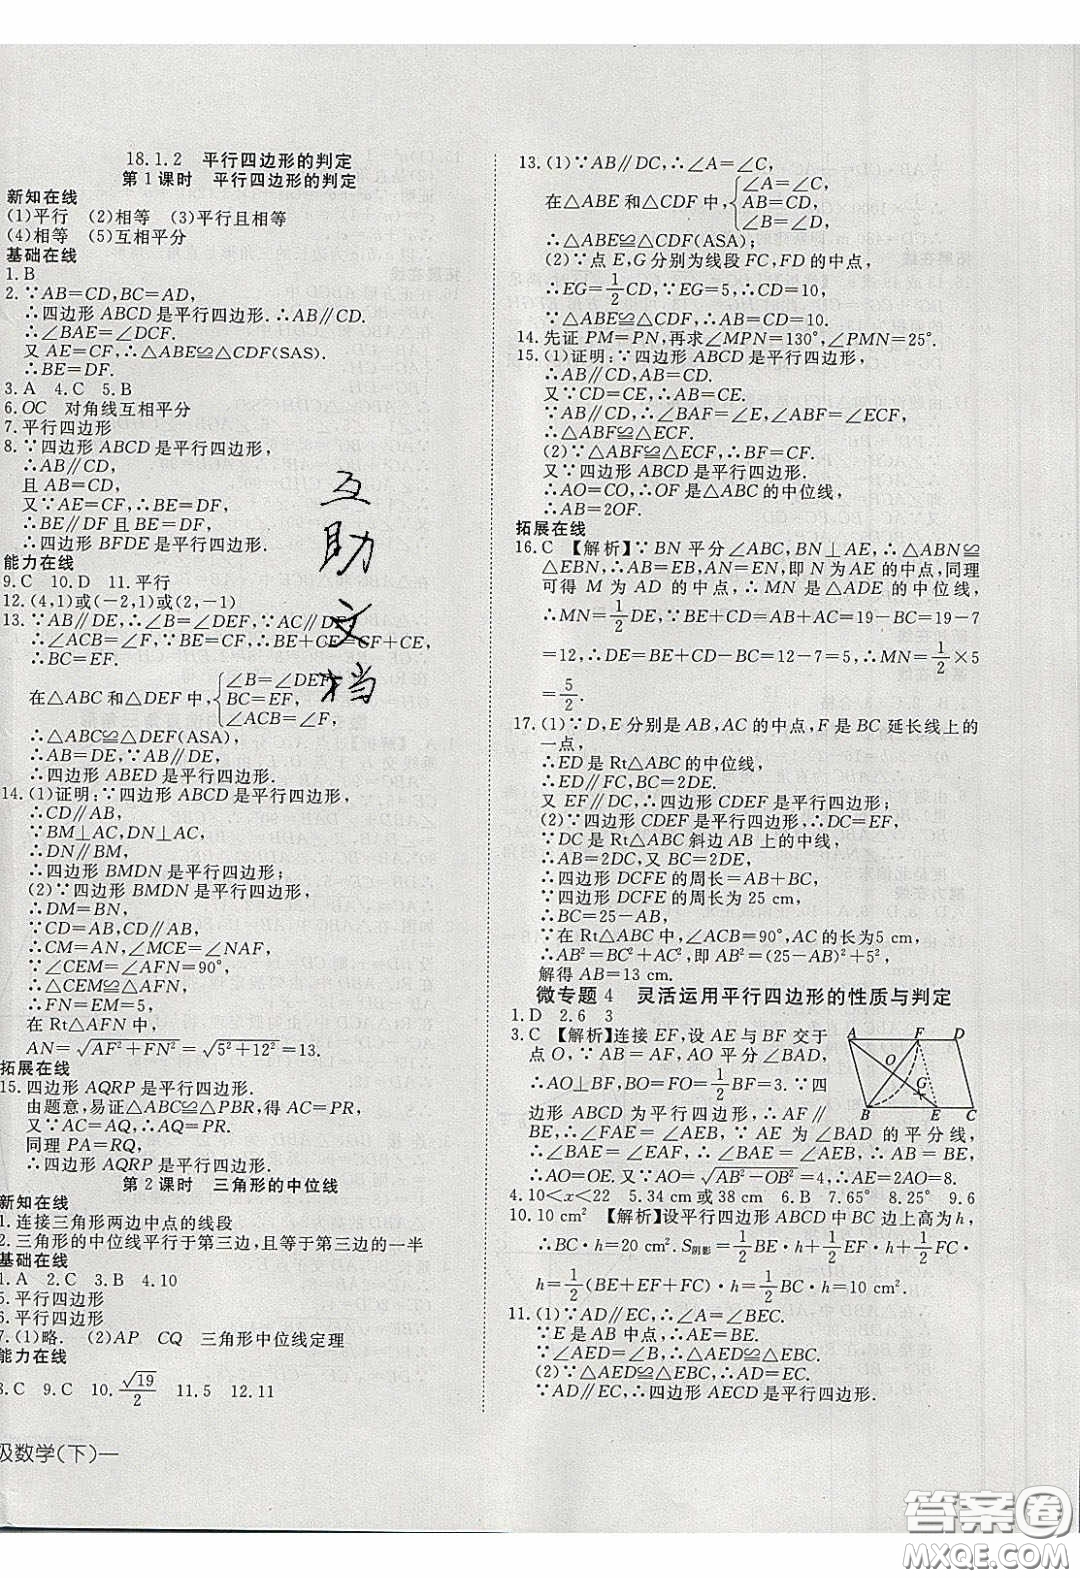 18.1.2 平行四边形的判定
第1课时 平行四边形的判定
新知在线
(1)平行 (2)相等 (3)平行且相等
(4)相等 (5)互相平分
基础在线
1.B
2.∵AB=CD,BC=AD,
∴四边形ABCD是平行四边形.∴AB∥CD.
∴∠BAE=∠DCF.
又AE=CF,∴△ABE≌△CDF(SAS).
∴BE=DF.
3.A 4.C 5.B
6.OC 对角线互相平分
7.平行四边形
8.∵四边形ABCD是平行四边形,
∴AB∥CD,
且AB=CD,
又∵AE=CF,∴BE=DF,
∴BE∥DF且BE=DF,
∴四边形BFDE是平行四边形.
能力在线
9.C 10.D 11.平行
12.(4,1)或(-2,1)或(2,-1)
13.∵AB∥DE,∴∠B=∠DEF,∵AC∥DF,
∴∠ACB=∠F,∵BE=CF,∴BE+CE=CF+CE,
∴BC=EF.
在△ABC和△DEF中,{∠B=∠DEF,
BC=EF,
∠ACB=∠F,
∴△ABC≌△DEF(ASA),
∴AB=DE,∵AB∥DE,
∴四边形ABED是平行四边形.
14.(1)证明:∵四边形ABCD是平行四边形,
∴CD∥AB,
∵BM⊥AC,DN⊥AC,
∴DN∥BM,
∴四边形BMDN是平行四边形;
(2)∵四边形BMDN是平行四边形,
∴DM=BN,
∵CD=AB,CD∥AB,
∴CM=AN,∠MCE=∠NAF,
∵∠CEM=∠AFN=90°,
∴△CEM≌△AFN,
∴FN=EM=5,
在Rt△AFN中,
AN=√(AF²+FN²)=√(5²+12²)=13.
拓展在线
15.四边形AQRP是平行四边形.
由题意,易证△ABC≌△PBR,得AC=PR,
又∵AC=AQ,∴AQ=PR.
同理PA=RQ,
∴四边形AQRP是平行四边形.
第2课时 三角形的中位线
新知在线
1.连接三角形两边中点的线段
2.三角形的中位线平行于第三边,且等于第三边的一半
基础在线
1.A 2.C 3.B 4.10
5.平行四边形
6.平行四边形
7.(1)略. (2)AP CQ 三角形中位线定理
能力在线
8.C 9.C 10.√19/2 11.5 12.11
级数学(下)—
13.(1)∵AB∥DC,∴∠A=∠C,
在△ABE和△CDF中,{∠A=∠C,
AB=CD,
∠B=∠D,
∴△ABE≌△CDF(ASA);
(2)∵点E,G分别为线段FC,FD的中点,
∴EG=1/2CD,∵EG=5,∴CD=10,
∵△ABE≌△CDF,∴AB=CD=10.
14.先证PM=PN,再求∠MPN=130°,∠PMN=25°.
15.(1)证明:∵四边形ABCD是平行四边形,
∴AB∥CD,AB=CD.
又∵CD=CE,∴AB=CE.
∵AB∥CD,∴∠BAF=∠E,∠ABF=∠ECF,
∴△ABF≌△ECF.
(2)∵△ABF≌△ECF,∴BF=CF.
又∵四边形ABCD是平行四边形.
∴AO=CO,∴OF是△ABC的中位线,
∴AB=2OF.
拓展在线
16.C 【解析】∵BN平分∠ABC,BN⊥AE,∴△ABN≌
△EBN,∴AB=EB,AN=EN,即N为AE的中点,同理
可得M为AD的中点,∴MN是△ADE的中位线,
∴MN=1/2DE,∵BE+CD=AB+AC=19-BC=19-7
=12,∴DE=BE+CD-BC=12-7=5,∴MN=1/2×5
=5/2.
17.(1)∵D,E分别是AB,AC的中点,F是BC延长线上的
一点,
∴ED是Rt△ABC的中位线,
∴ED∥FC,BC=2DE.
又EF∥DC,∴四边形CDEF是平行四边形;
(2)∵四边形CDEF是平行四边形,∴DC=EF,
∵DC是Rt△ABC斜边AB上的中线,
∴AB=2DC,又BC=2DE,
∴四边形DCFE的周长=AB+BC,
∵四边形DCFE的周长为25 cm,
∴BC=25-AB,
∵在Rt△ABC中,∠ACB=90°,AC的长为5 cm,
∴AB²=BC²+AC²,即AB²=(25-AB)²+5²,
解得AB=13 cm.
微专题4 灵活运用平行四边形的性质与判定
1.D 2.6 3
3.C 【解析】连接EF,设AE与BF交于
点O,∵AB=AF,AO平分∠BAD,
∴AO⊥BF,BO=FO=1/2BF=3.∵四
边形ABCD为平行四边形,∴AF∥
BE,∴∠FAE=∠AEB,∵AE为∠BAD的平分线,
∴∠BAE=∠EAF,∴∠BAE=∠AEB,∴AB=BE,
∴AO=OE.又∵AO=√(AB²-OB²)=4,∴AE=2AO=8.
4.10<x<22 5.34 cm或38 cm 6.B 7.65° 8.25° 9.6
10.10 cm² 【解析】设平行四边形ABCD中BC边上高为h,
∴BC·h=20 cm².S阴影=1/2BE·h+1/2EF·h+1/2FC·
h=1/2(BE+EF+FC)·h=1/2BC·h=10 cm².
11.(1)∵AD∥EC,∴∠A=∠BEC.
∵E是AB中点,∴AE=BE.
∵∠AED=∠B,∴△AED≌△EBC.
(2)∵△AED≌△EBC,∴AD=EC.
∵AD∥EC,∴四边形AECD是平行四边形.
A F D
O
G
B E C
互
助
文
档
答案圈
MXQE.COM